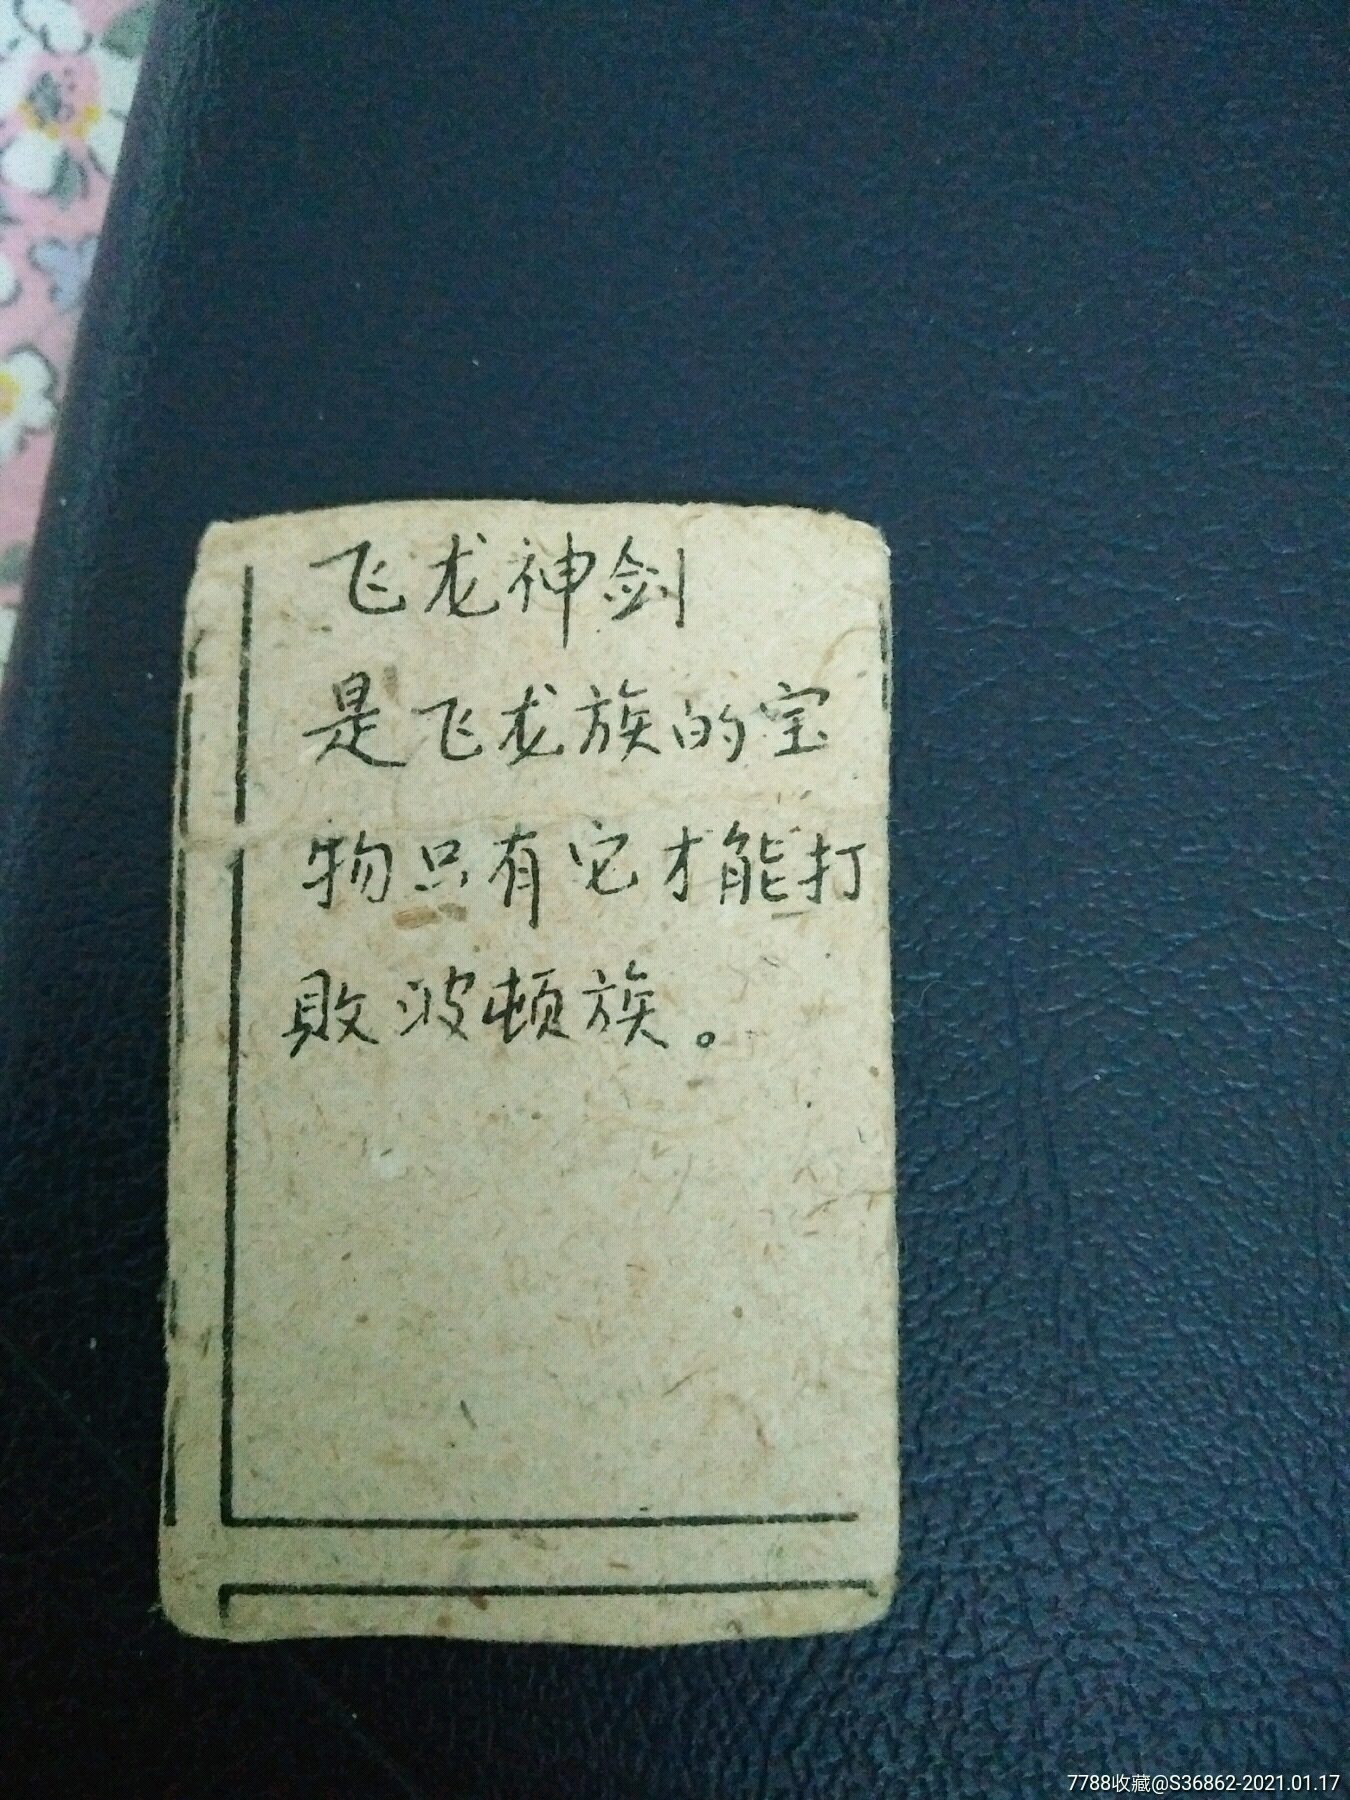 飞龙神剑
是飞龙族的宝
物只有它才能打
敗波顿族。
7788收藏@S36862-2021.01.17